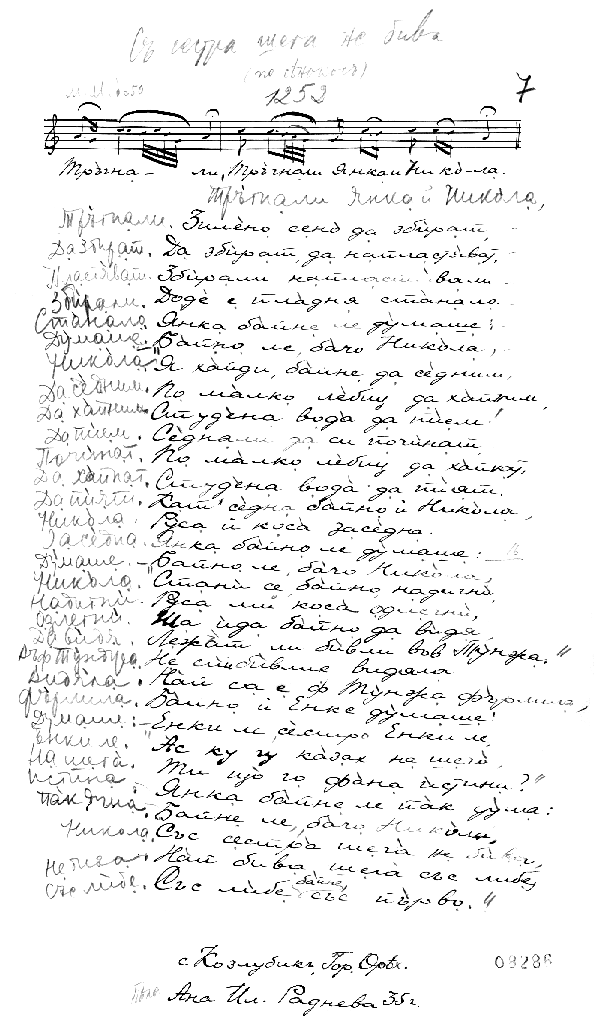 Съ сестра шега не бива
1252
7
Тръгна - ли, Тръгнали Янка и Никола.
Тръгнали Янка й Никола,
Тръгнали. Зилено сено да збират,
Да збират. Да збират, да напластяват,
Пластяват. Збирали напластявали
Збирали. Доде е пладня станало.
Станало. Янка байне ле думаше:
Думаше. „Байно ле, бачо Никола,
Никола „Я хайди, байне, да седним,
Да седним. По малко лебец да хапним,
Да хапним. Студена вода да пием!
Да пием. Седнали да си починат,
Починат. По малко лебец да хапнат,
Да хапнат. Студена вода да пият.
Да пият. Кат седна байно й Никола,
Никола. Руса й коса заседна.
Заседна. Янка байно ле думаше:
Думаше. – Байно ле, бачо Никола,
Никола. Стани се байно надигни,
Надигни. Руса ми коса
Ша ида байно да видя,
Да видя. Лежат ли биволи вов Тунджа."
Вър Тунджа. Не видяла
Видяла. Най са е ф Тунджа фърлила,
Фърлила. Байно й Енке думаше:
Думаше: – Енки ле, сестро Енки ле,
Енки ле. „Ас ку гу казах на шега,
На шега. Ти що го фана истина?"
Истина – Янка байне ле пак дума:
Пак дума – Байне ле, бачо Никола,
Никола. Със сестра шега не бива,
Не бива. Най бива шега със либе,
Със либе. Със либе, байне, със първо."
с. Козлубикъ, Гор. Орѣх.
08286
Пѣла Ана Ил. Раднева 35 г.